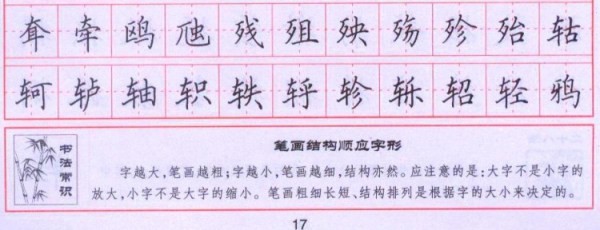 耷 牵 鸥 虺 残 殂 殃 殇 殄 殆 轱
轲 轳 轴 轵 轶 轷 轸 轹 轺 轻 鸦
书法常识
笔画结构顺应字形
字越大,笔画越粗;字越小,笔画越细,结构亦然。应注意的是:大字不是小字的
放大,小字不是大字的缩小。笔画粗细长短、结构排列是根据字的大小来决定的。
17